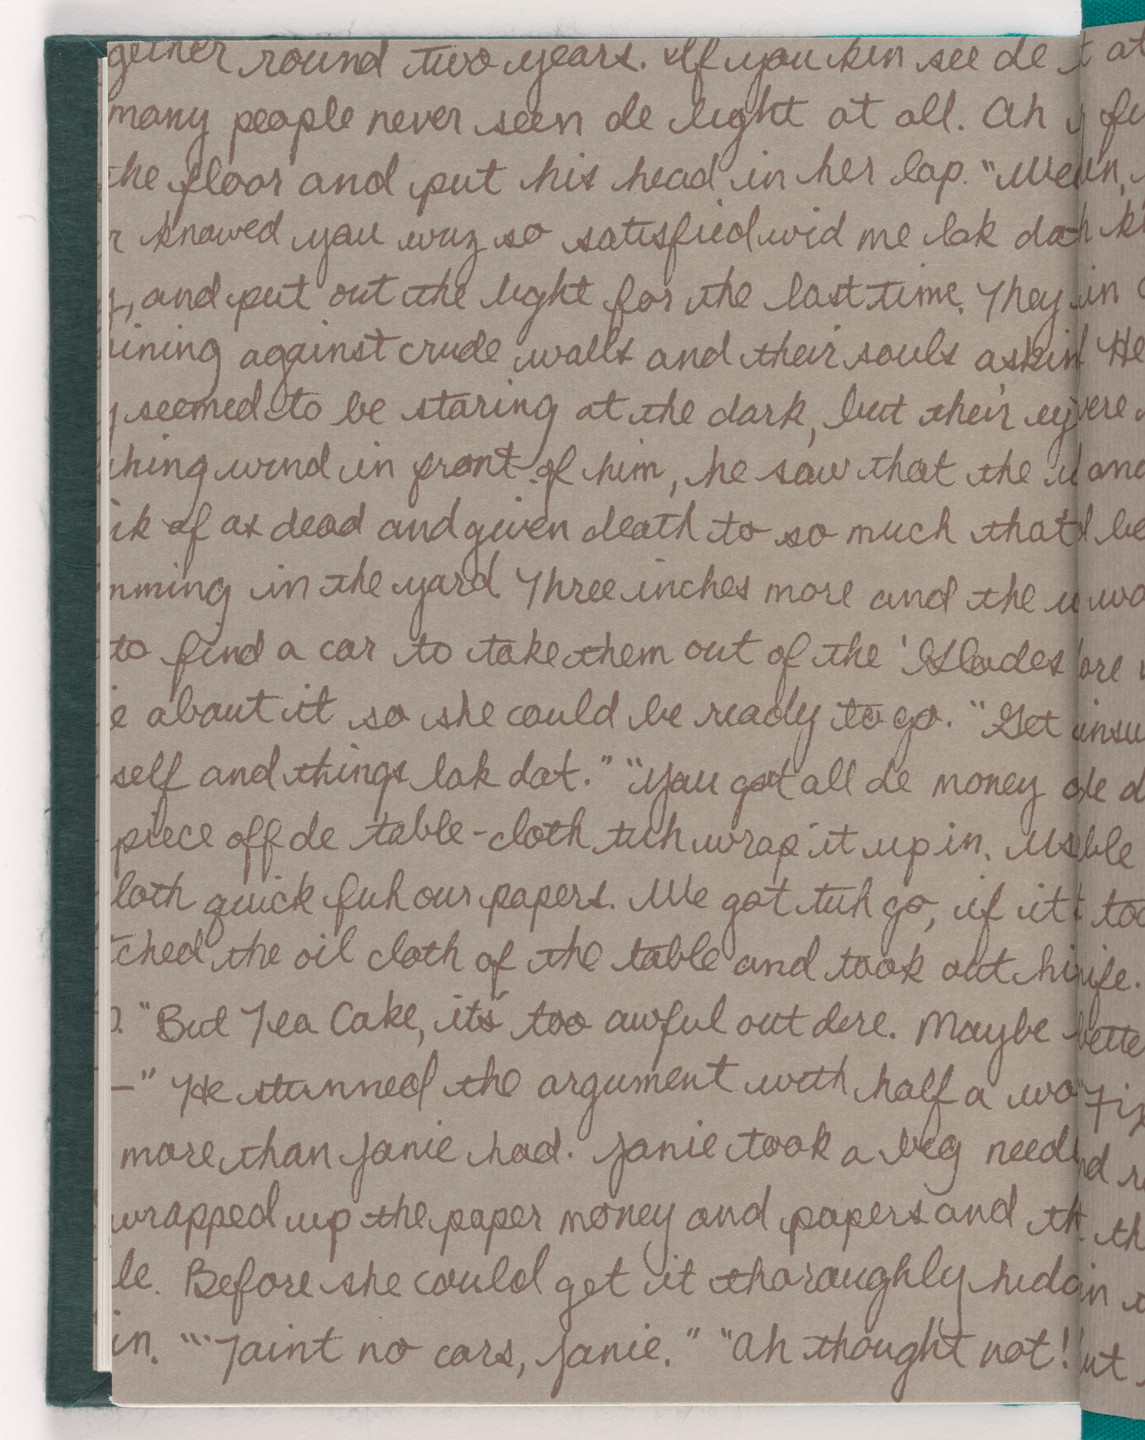 gether round two years. If you kin see de t at
many people never seen de light at all. Ah fu
the floor and put his head in her lap. "Well
knowed you wuz so satisfied wid me lak dat
, and put out the light for the last time. They in
ining against crude walls and their souls askin He
y seemed to be staring at the dark, but their ey vere
hing wind in front of him, he saw that the and
nk of as dead and given death to so much that be
mming in the yard Three inches more and the wa
to find a car to take them out of the 'Glades ore
e about it so she could be ready to go. "Get insu
self and things lak dat." "You got all de money de d
piece off de table-cloth tuh wrap it up in. Us ble
loth quick fuh our papers. We got tuh go, if it too
tched the oil cloth of the table and took out hi ife.
"But Tea Cake, it's too awful out dere. Maybe bette
—" He stunned the argument with half a wo "Fi
more than Janie had. Janie took a big need nd
wrapped up the paper money and papers and th th
le. Before she could get it thoroughly hid in t
in. "'Taint no cars, Janie." "Ah thought not! ut